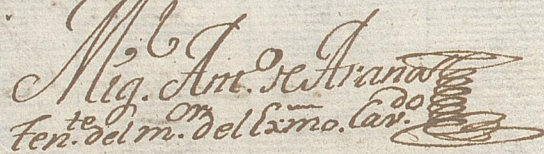 Mig.l Ant.o de Arana
Ten.te del m.or del Exmo. Cav.do